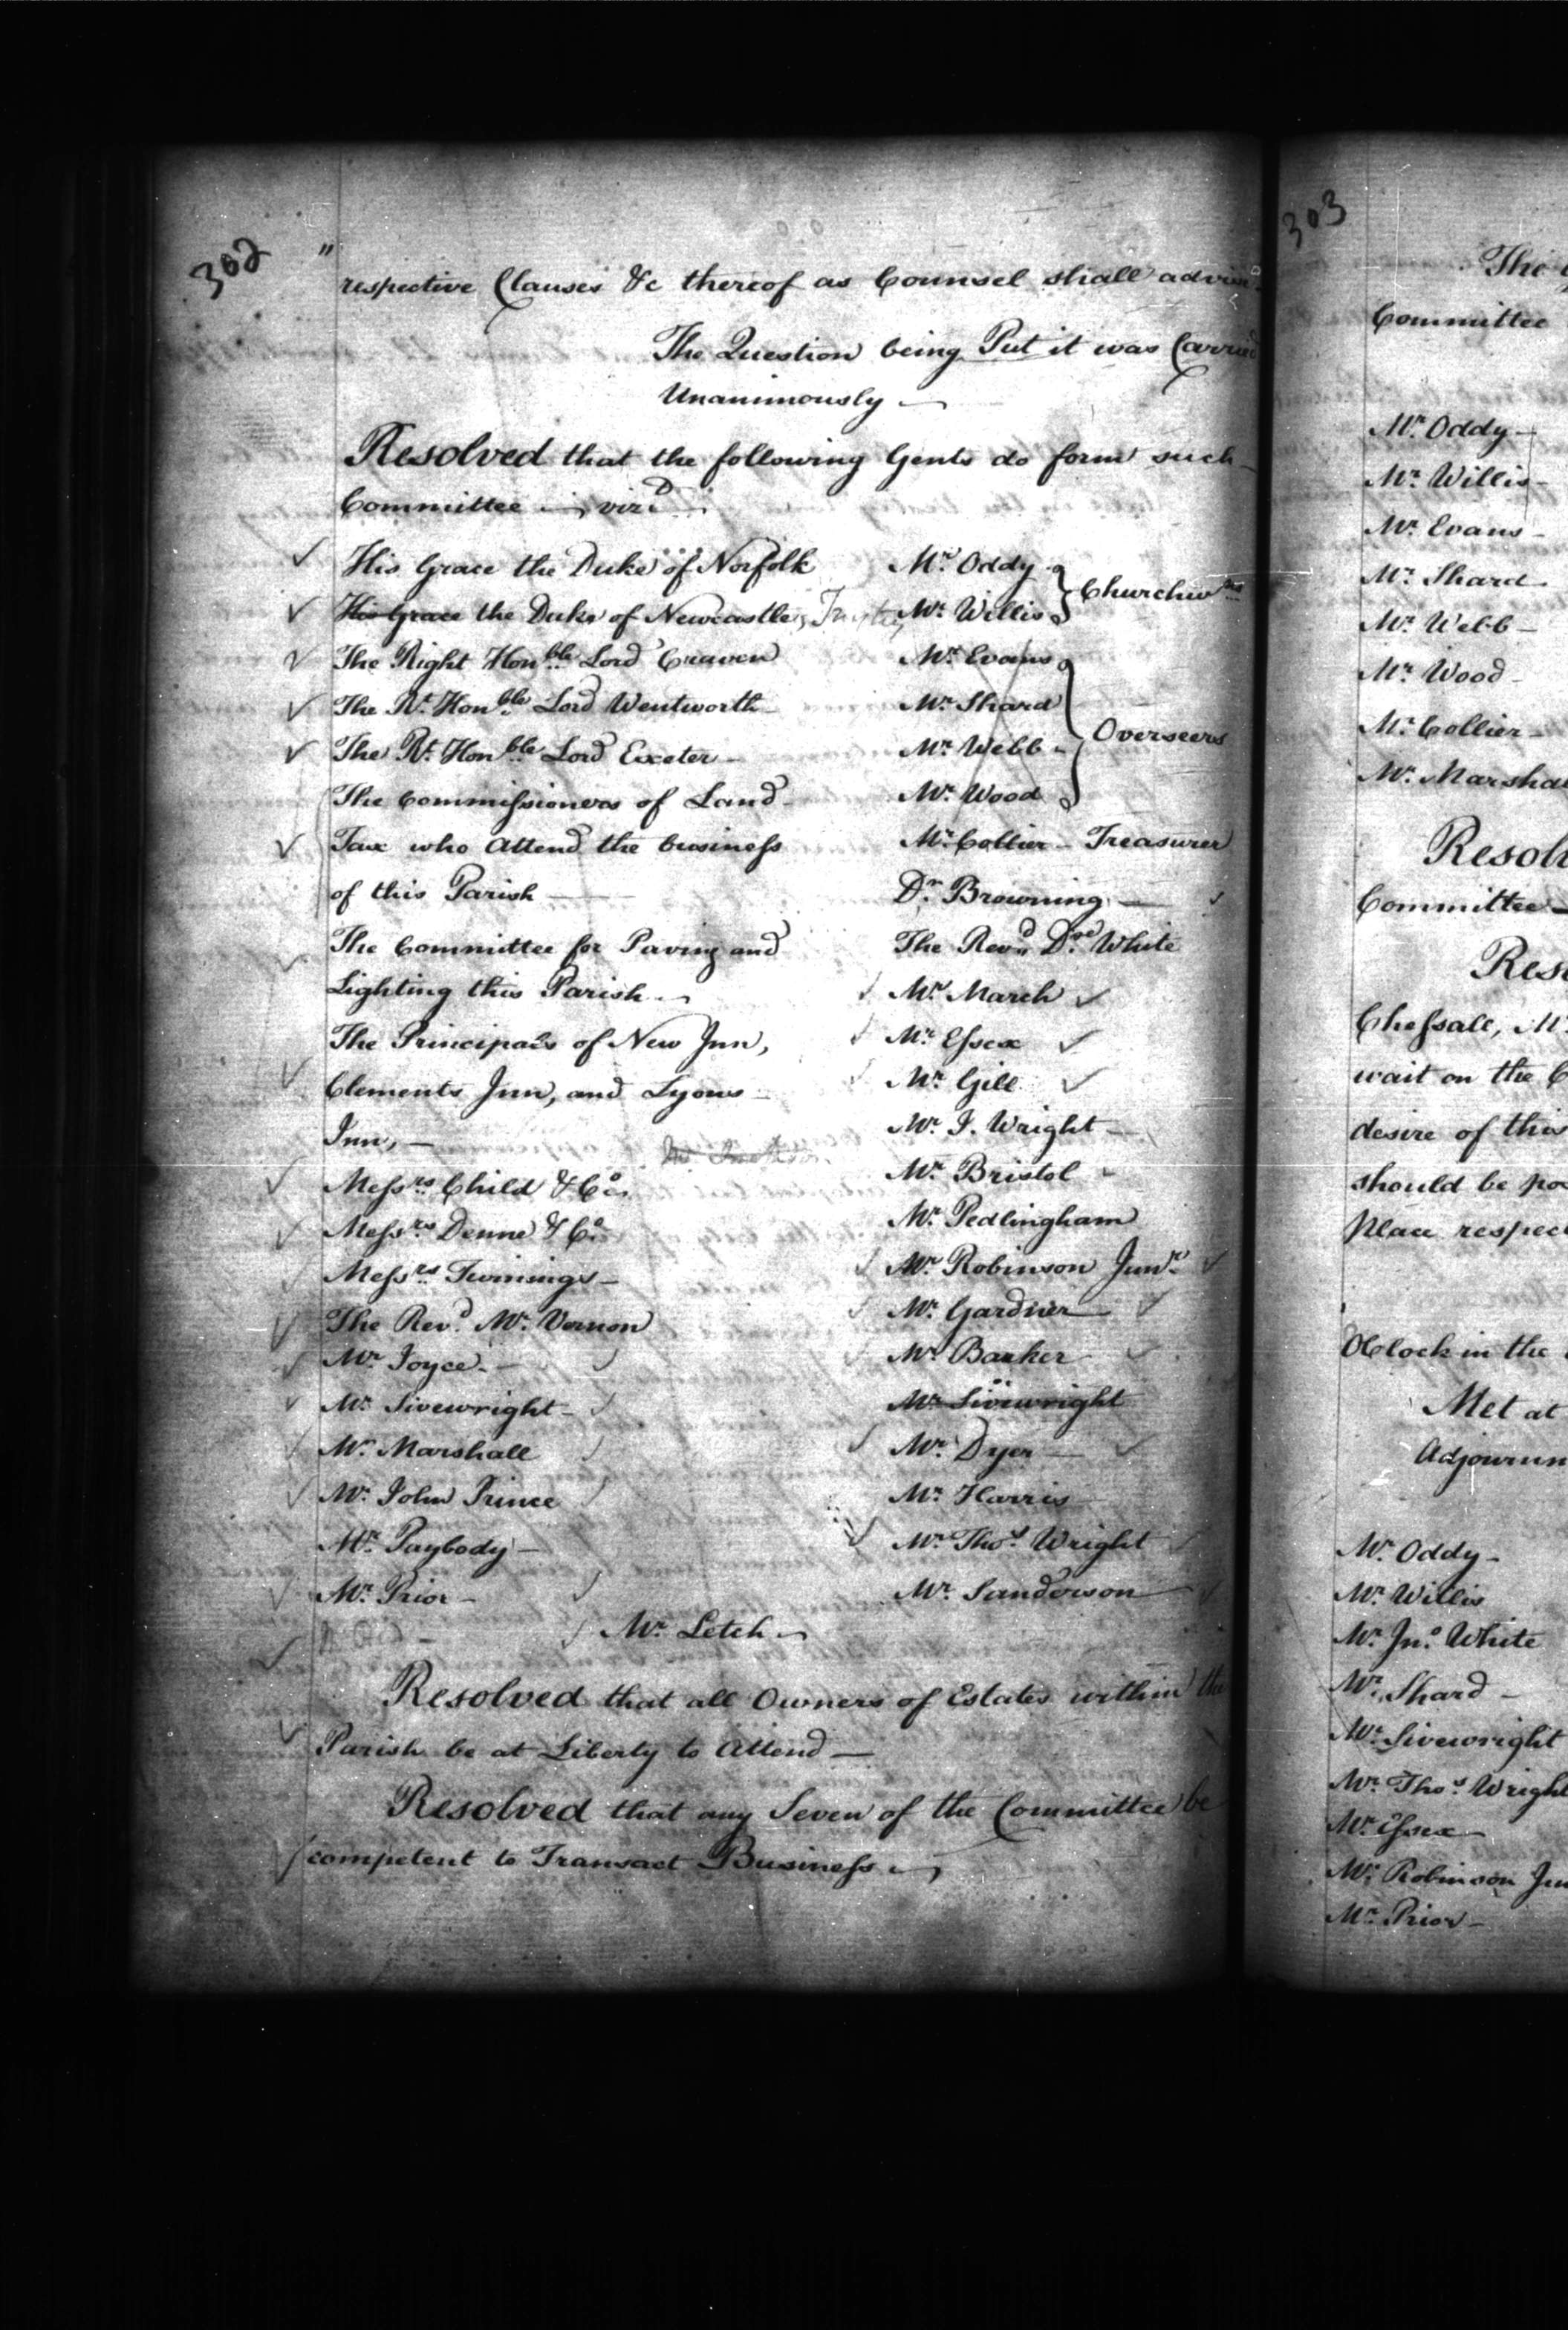 302
" respective Clauses &c thereof as Counsel shall advise
The Question being Put it was Carried
Unanimously —
Resolved that the following Gents do form such
Committee — vizᵈ
His Grace the Duke of Norfolk
His Grace the Duke of Newcastle,
The Right Honble Lord Craven
The Rt Honble Lord Wentworth
The Rt Honble Lord Exeter —
The Commissioners of Land
Tax who Attend the business
of this Parish —
The Committee for Paving and
Lighting this Parish —
The Principals of New Inn,
Clements Inn, and Lyons
Inn, —
Messrs Child & Co.
Messrs Denne & Co.
Messrs Twinings —
The Revd Mr Vernon
Mr Joyce —
Mr Sivewright —
Mr Marshall
Mr John Prince
Mr Paybody —
Mr Prior —
Mr Oddy
Mr Willis
Churchwdns
Mr Evans
Mr Shard
Mr Webb
Mr Wood
Overseers
Mr Collier — Treasurer
Dr Browning —
The Revd Dr White
Mr March
Mr Essex
Mr Gill
Mr I. Wright —
Mr Bristol
Mr Pedlingham
Mr Robinson Junr
Mr Gardner
Mr Barker
Mr Sivewright
Mr Dyer —
Mr Harris
Mr Thos Wright
Mr Sanderson
Mr Letch —
Resolved that all Owners of Estates within the
Parish be at Liberty to Attend —
Resolved that any Seven of the Committee be
competent to Transact Business —
303
The
Committee
Mr Oddy —
Mr Willis —
Mr Evans —
Mr Shard
Mr Webb —
Mr Wood —
Mr Collier —
Mr Marsha
Resol
Committee —
Res
Chessall, M
wait on the
desire of this
should be
Place respec
OClock in the
Met at
Adjournm
Mr Oddy —
Mr Willis
Mr Jno White
Mr Shard —
Mr Sivewright
Mr Thos Wright
Mr Essex —
Mr Robinson Jun
Mr Prior —